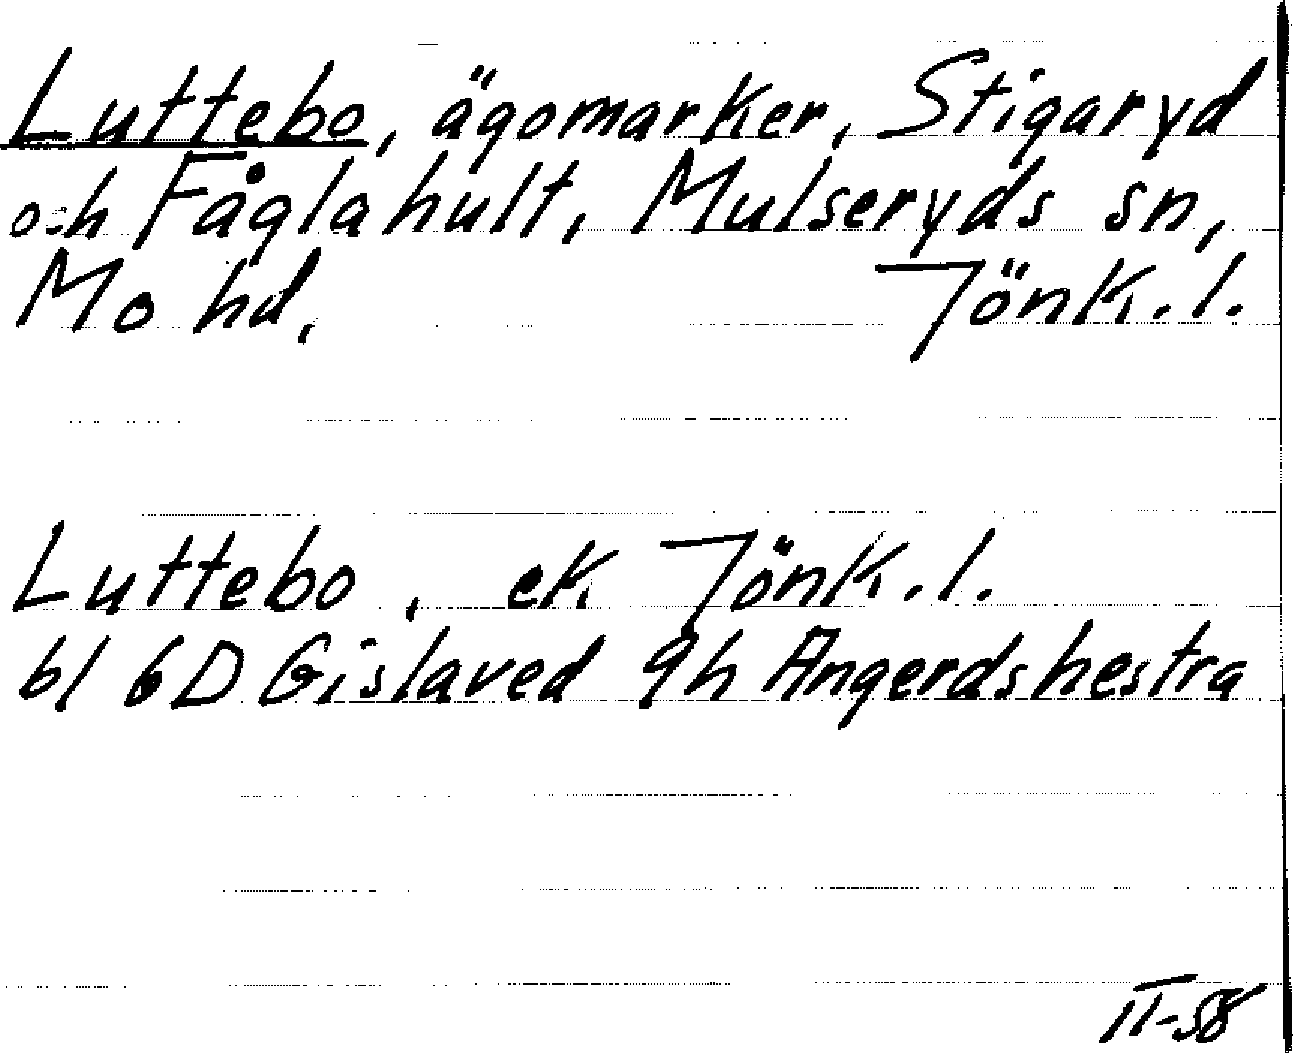 Luttebo, ägomarker, Stigaryd
och Fåglahult, Mulseryds sn,
Mo hd, Jönk. l.
Luttebo, ek Jönk. l.
bl 6D Gislaved 9h Angerdshestra
II-58